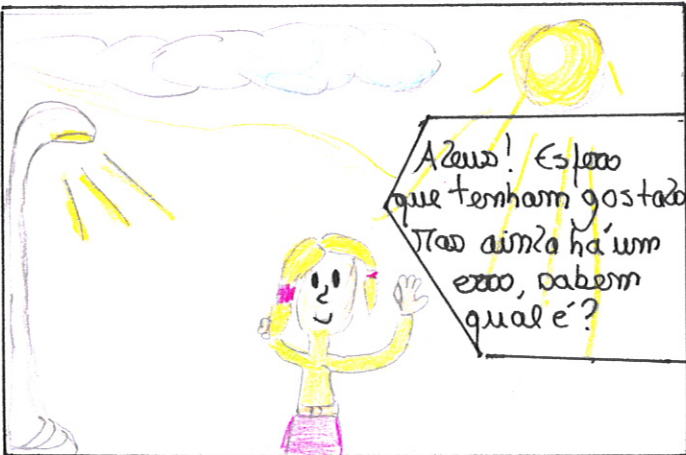 Adeus! Espero
que tenham gostado
Mas ainda há um
erro, sabem
qual é?